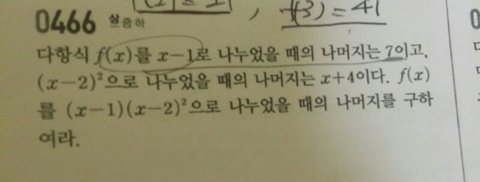 0466 상중하 , f(3)=41
다항식 f(x)를 x-1로 나누었을 때의 나머지는 7이고,
(x-2)²으로 나누었을 때의 나머지는 x+4이다. f(x)
를 (x-1)(x-2)²으로 나누었을 때의 나머지를 구하
여라.